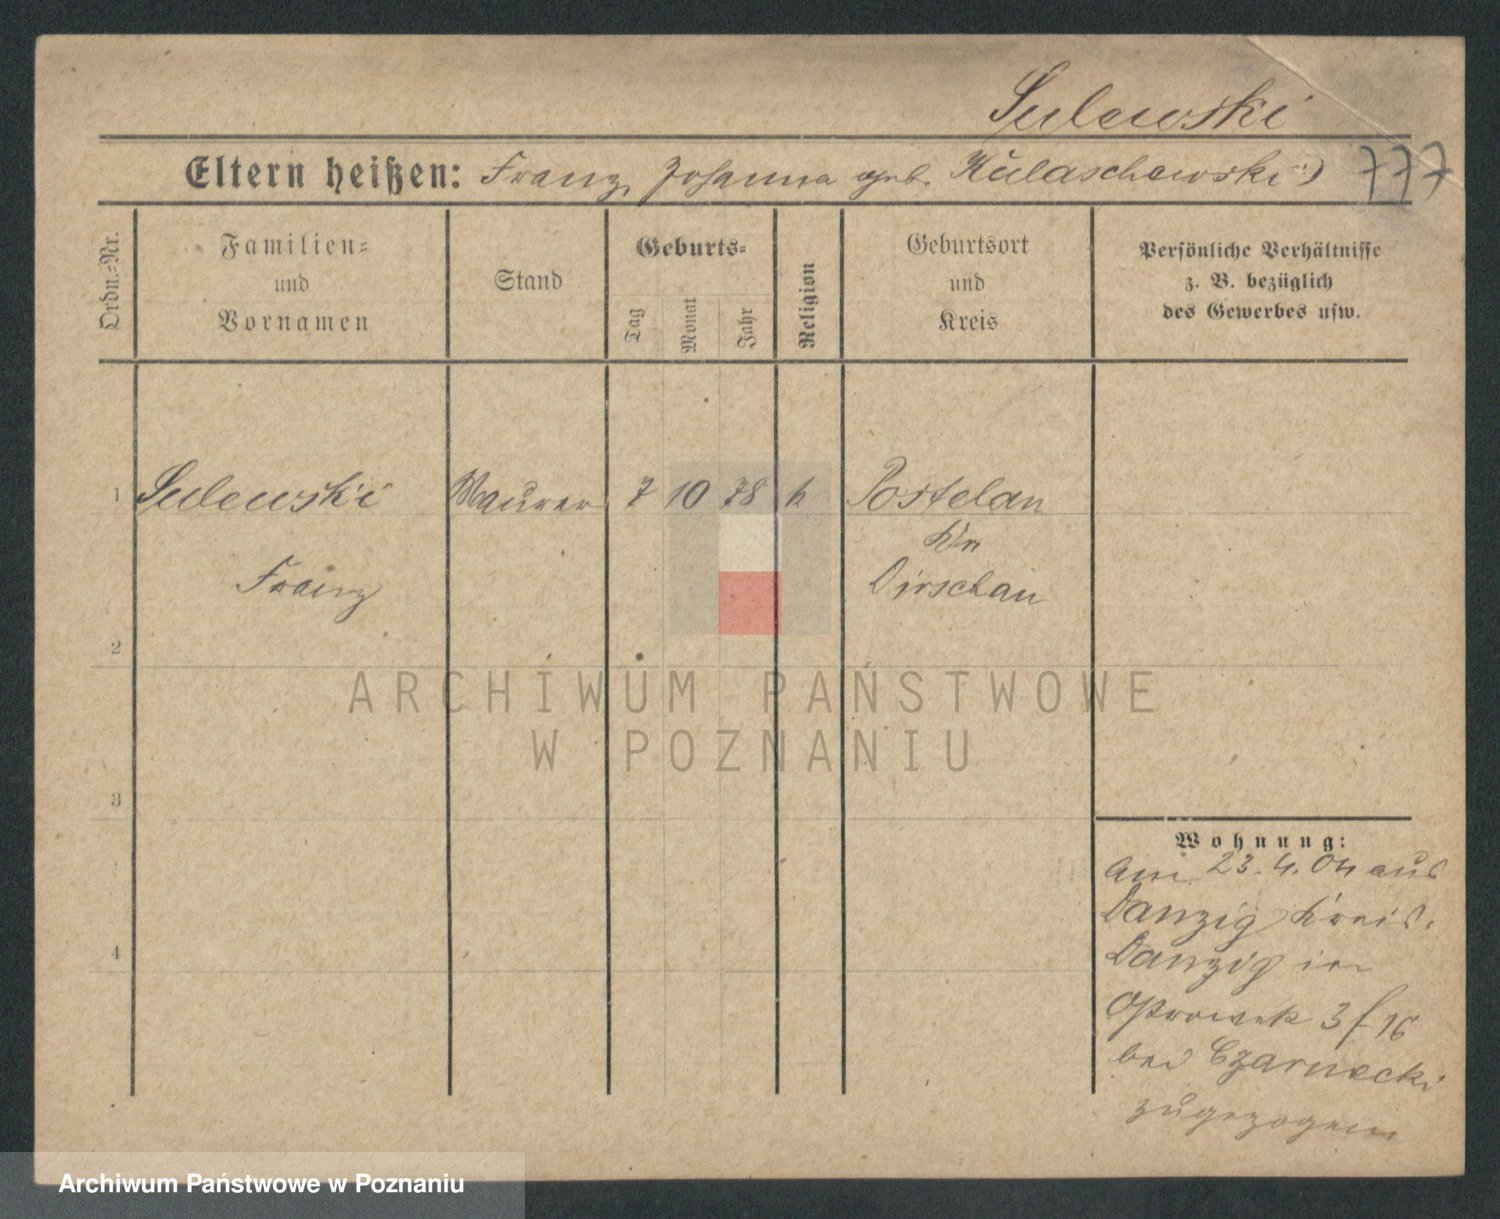 Sulewski
Eltern heißen: Franz, Johanna geb. Kulaschewski) 777
Ordn.-Nr.
Familien-
und
Vornamen
Stand
Geburts-
Tag
Monat
Jahr
Religion
Geburtsort
und
Kreis
Persönliche Verhältnisse
z. B. bezüglich
des Gewerbes usw.
1 Sulewski Maurer 7 10 78 k Postelau
Krs
Franz Dirschau
2
ARCHIWUM PAŃSTWOWE
W POZNANIU
3
Wohnung:
Am 23.4.04 aus
Danzig Kreis.
4
Danzig in
Ostrowek 3/16
bei Czarnecki
zugezogen
Archiwum Państwowe w Poznaniu